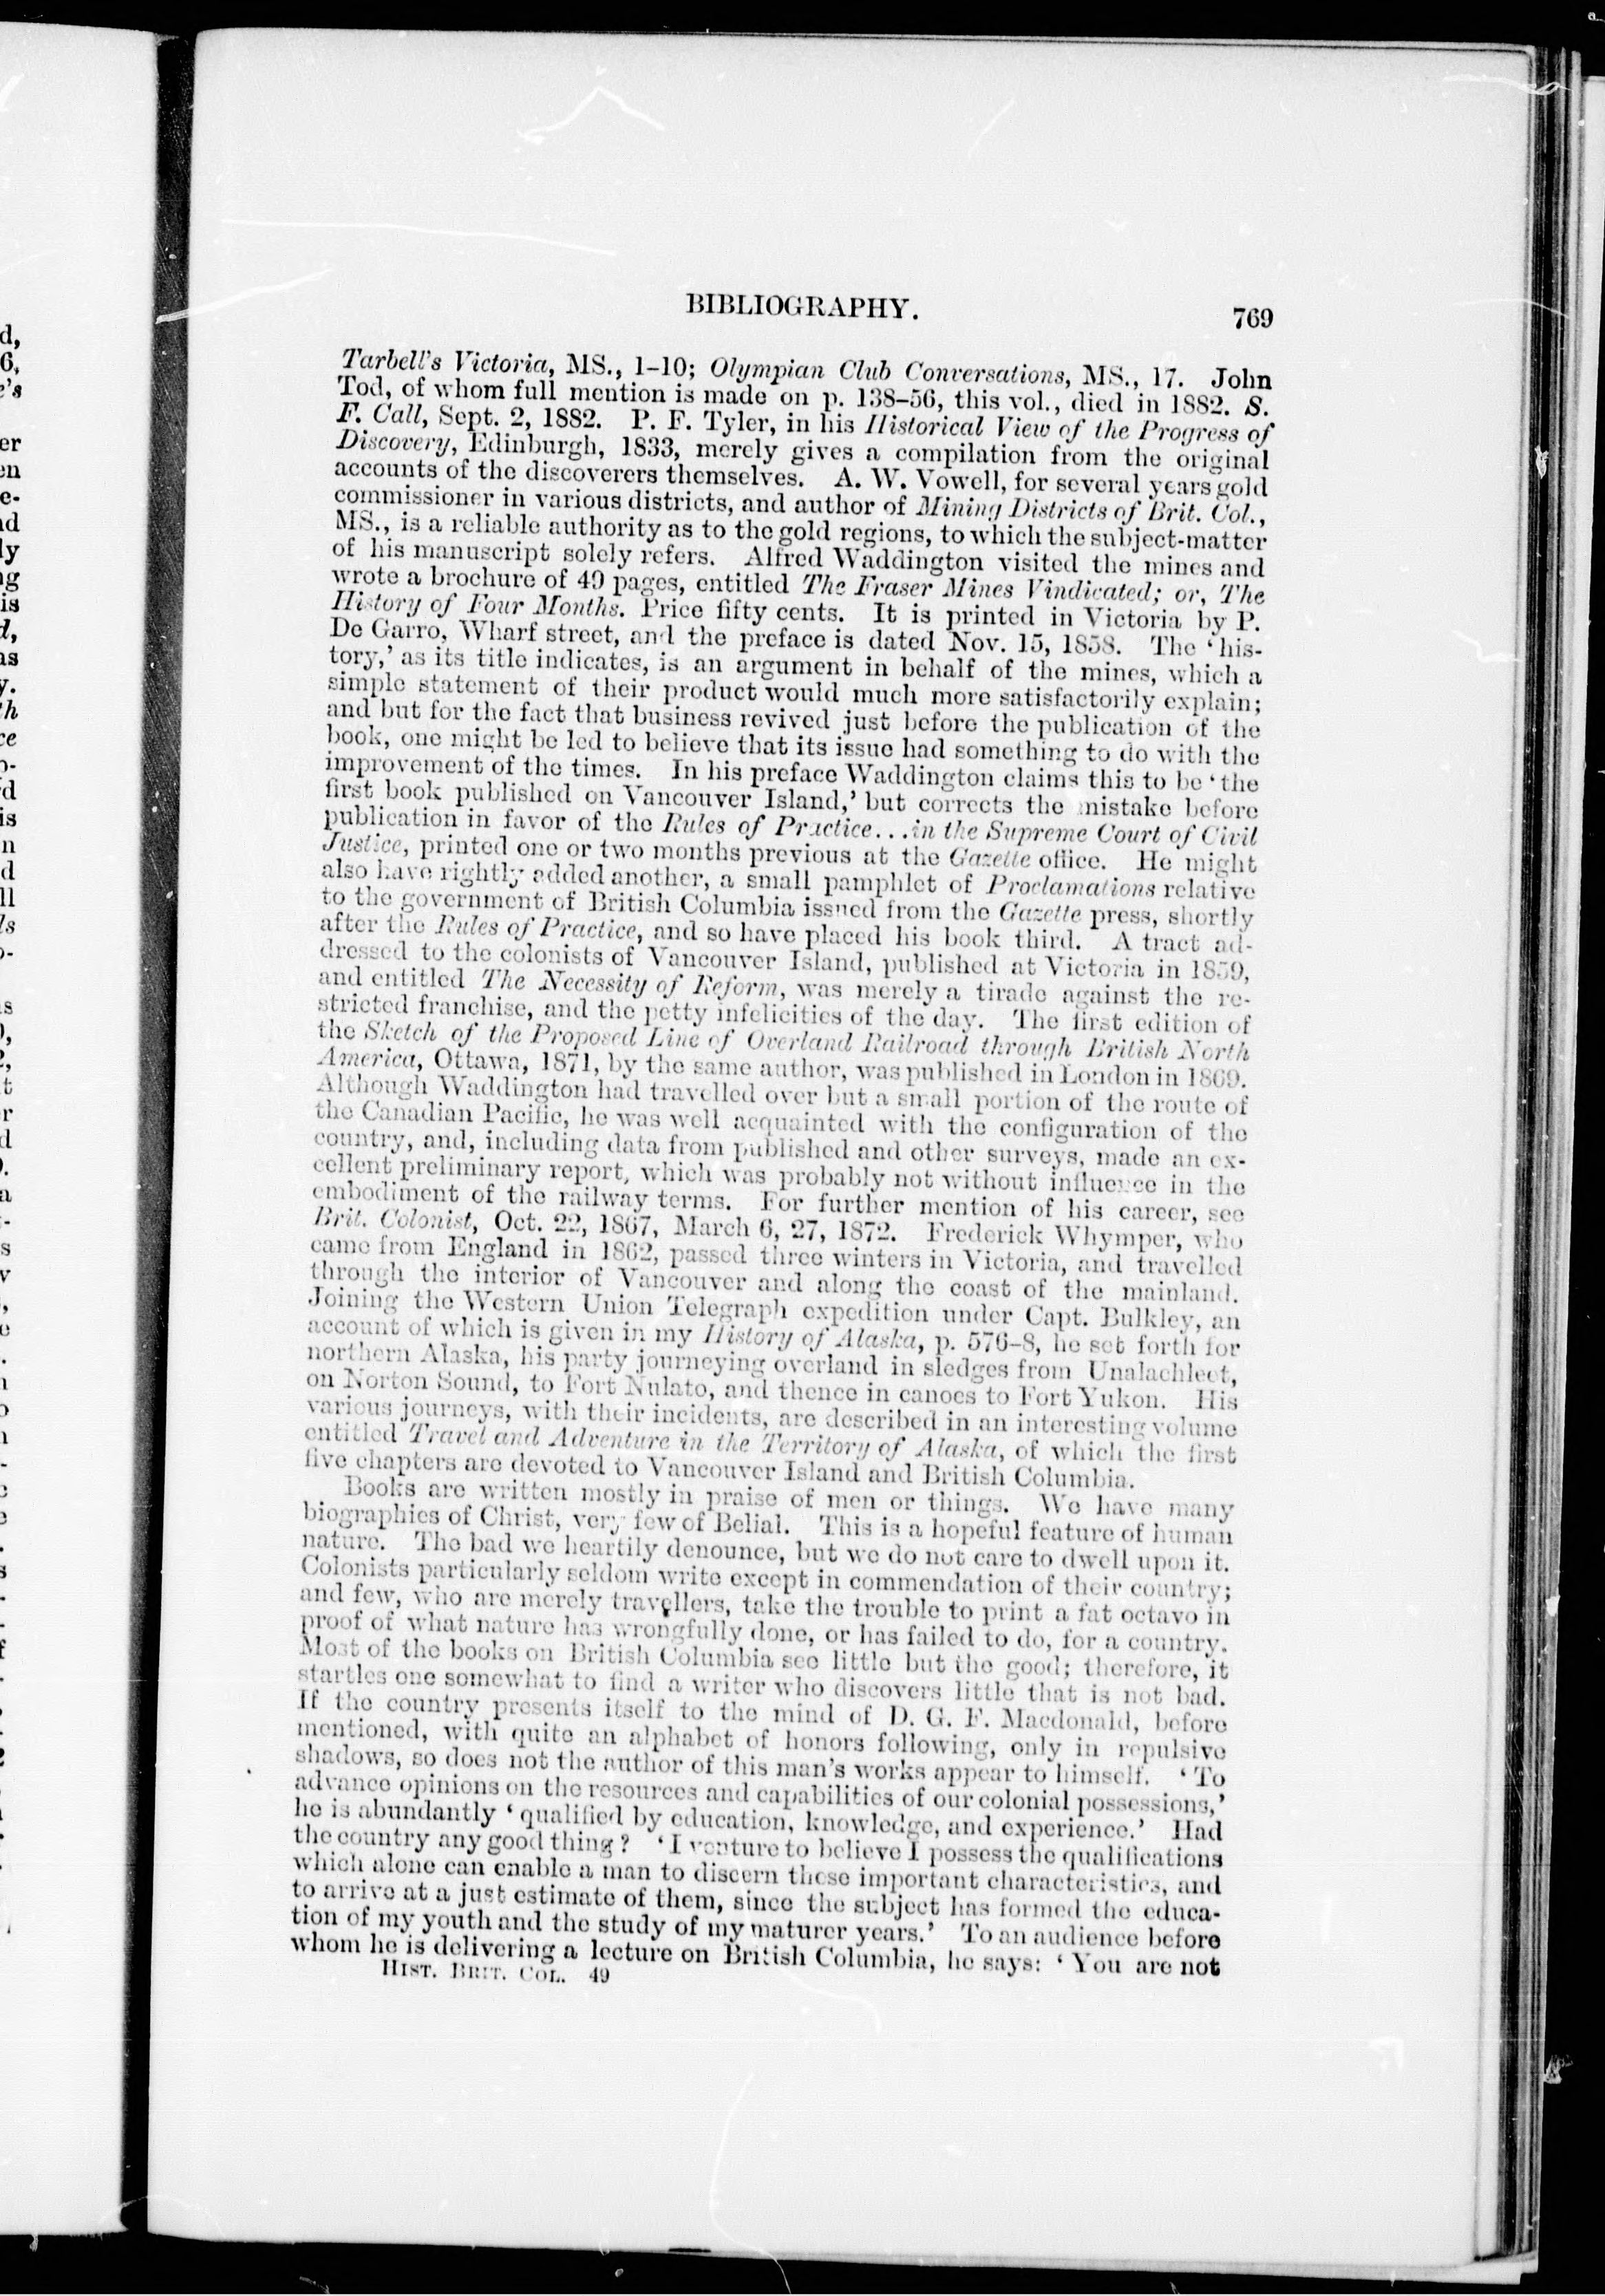 BIBLIOGRAPHY. 769
Tarbell's Victoria, MS., 1-10; Olympian Club Conversations, MS., 17. John
Tod, of whom full mention is made on p. 138-56, this vol., died in 1882. S.
F. Call, Sept. 2, 1882. P. F. Tyler, in his Historical View of the Progress of
Discovery, Edinburgh, 1833, merely gives a compilation from the original
accounts of the discoverers themselves. A. W. Vowell, for several years gold
commissioner in various districts, and author of Mining Districts of Brit. Col.,
MS., is a reliable authority as to the gold regions, to which the subject-matter
of his manuscript solely refers. Alfred Waddington visited the mines and
wrote a brochure of 49 pages, entitled The Fraser Mines Vindicated; or, The
History of Four Months. Price fifty cents. It is printed in Victoria by P.
De Garro, Wharf street, and the preface is dated Nov. 15, 1858. The 'his-
tory,' as its title indicates, is an argument in behalf of the mines, which a
simple statement of their product would much more satisfactorily explain;
and but for the fact that business revived just before the publication of the
book, one might be led to believe that its issue had something to do with the
improvement of the times. In his preface Waddington claims this to be 'the
first book published on Vancouver Island,' but corrects the mistake before
publication in favor of the Rules of Practice...in the Supreme Court of Civil
Justice, printed one or two months previous at the Gazette office. He might
also have rightly added another, a small pamphlet of Proclamations relative
to the government of British Columbia issued from the Gazette press, shortly
after the Rules of Practice, and so have placed his book third. A tract ad-
dressed to the colonists of Vancouver Island, published at Victoria in 1859,
and entitled The Necessity of Reform, was merely a tirade against the re-
stricted franchise, and the petty infelicities of the day. The first edition of
the Sketch of the Proposed Line of Overland Railroad through British North
America, Ottawa, 1871, by the same author, was published in London in 1869.
Although Waddington had travelled over but a small portion of the route of
the Canadian Pacific, he was well acquainted with the configuration of the
country, and, including data from published and other surveys, made an ex-
cellent preliminary report, which was probably not without influence in the
embodiment of the railway terms. For further mention of his career, see
Brit. Colonist, Oct. 22, 1867, March 6, 27, 1872. Frederick Whymper, who
came from England in 1862, passed three winters in Victoria, and travelled
through the interior of Vancouver and along the coast of the mainland.
Joining the Western Union Telegraph expedition under Capt. Bulkley, an
account of which is given in my History of Alaska, p. 576-8, he set forth for
northern Alaska, his party journeying overland in sledges from Unalachleet,
on Norton Sound, to Fort Nulato, and thence in canoes to Fort Yukon. His
various journeys, with their incidents, are described in an interesting volume
entitled Travel and Adventure in the Territory of Alaska, of which the first
five chapters are devoted to Vancouver Island and British Columbia.
Books are written mostly in praise of men or things. We have many
biographies of Christ, very few of Belial. This is a hopeful feature of human
nature. The bad we heartily denounce, but we do not care to dwell upon it.
Colonists particularly seldom write except in commendation of their country;
and few, who are merely travellers, take the trouble to print a fat octavo in
proof of what nature has wrongfully done, or has failed to do, for a country.
Most of the books on British Columbia see little but the good; therefore, it
startles one somewhat to find a writer who discovers little that is not bad.
If the country presents itself to the mind of D. G. F. Macdonald, before
mentioned, with quite an alphabet of honors following, only in repulsive
shadows, so does not the author of this man's works appear to himself. 'To
advance opinions on the resources and capabilities of our colonial possessions,'
he is abundantly 'qualified by education, knowledge, and experience.' Had
the country any good thing? 'I venture to believe I possess the qualifications
which alone can enable a man to discern these important characteristics, and
to arrive at a just estimate of them, since the subject has formed the educa-
tion of my youth and the study of my maturer years.' To an audience before
whom he is delivering a lecture on British Columbia, he says: 'You are not
HIST. BRIT. COL. 49